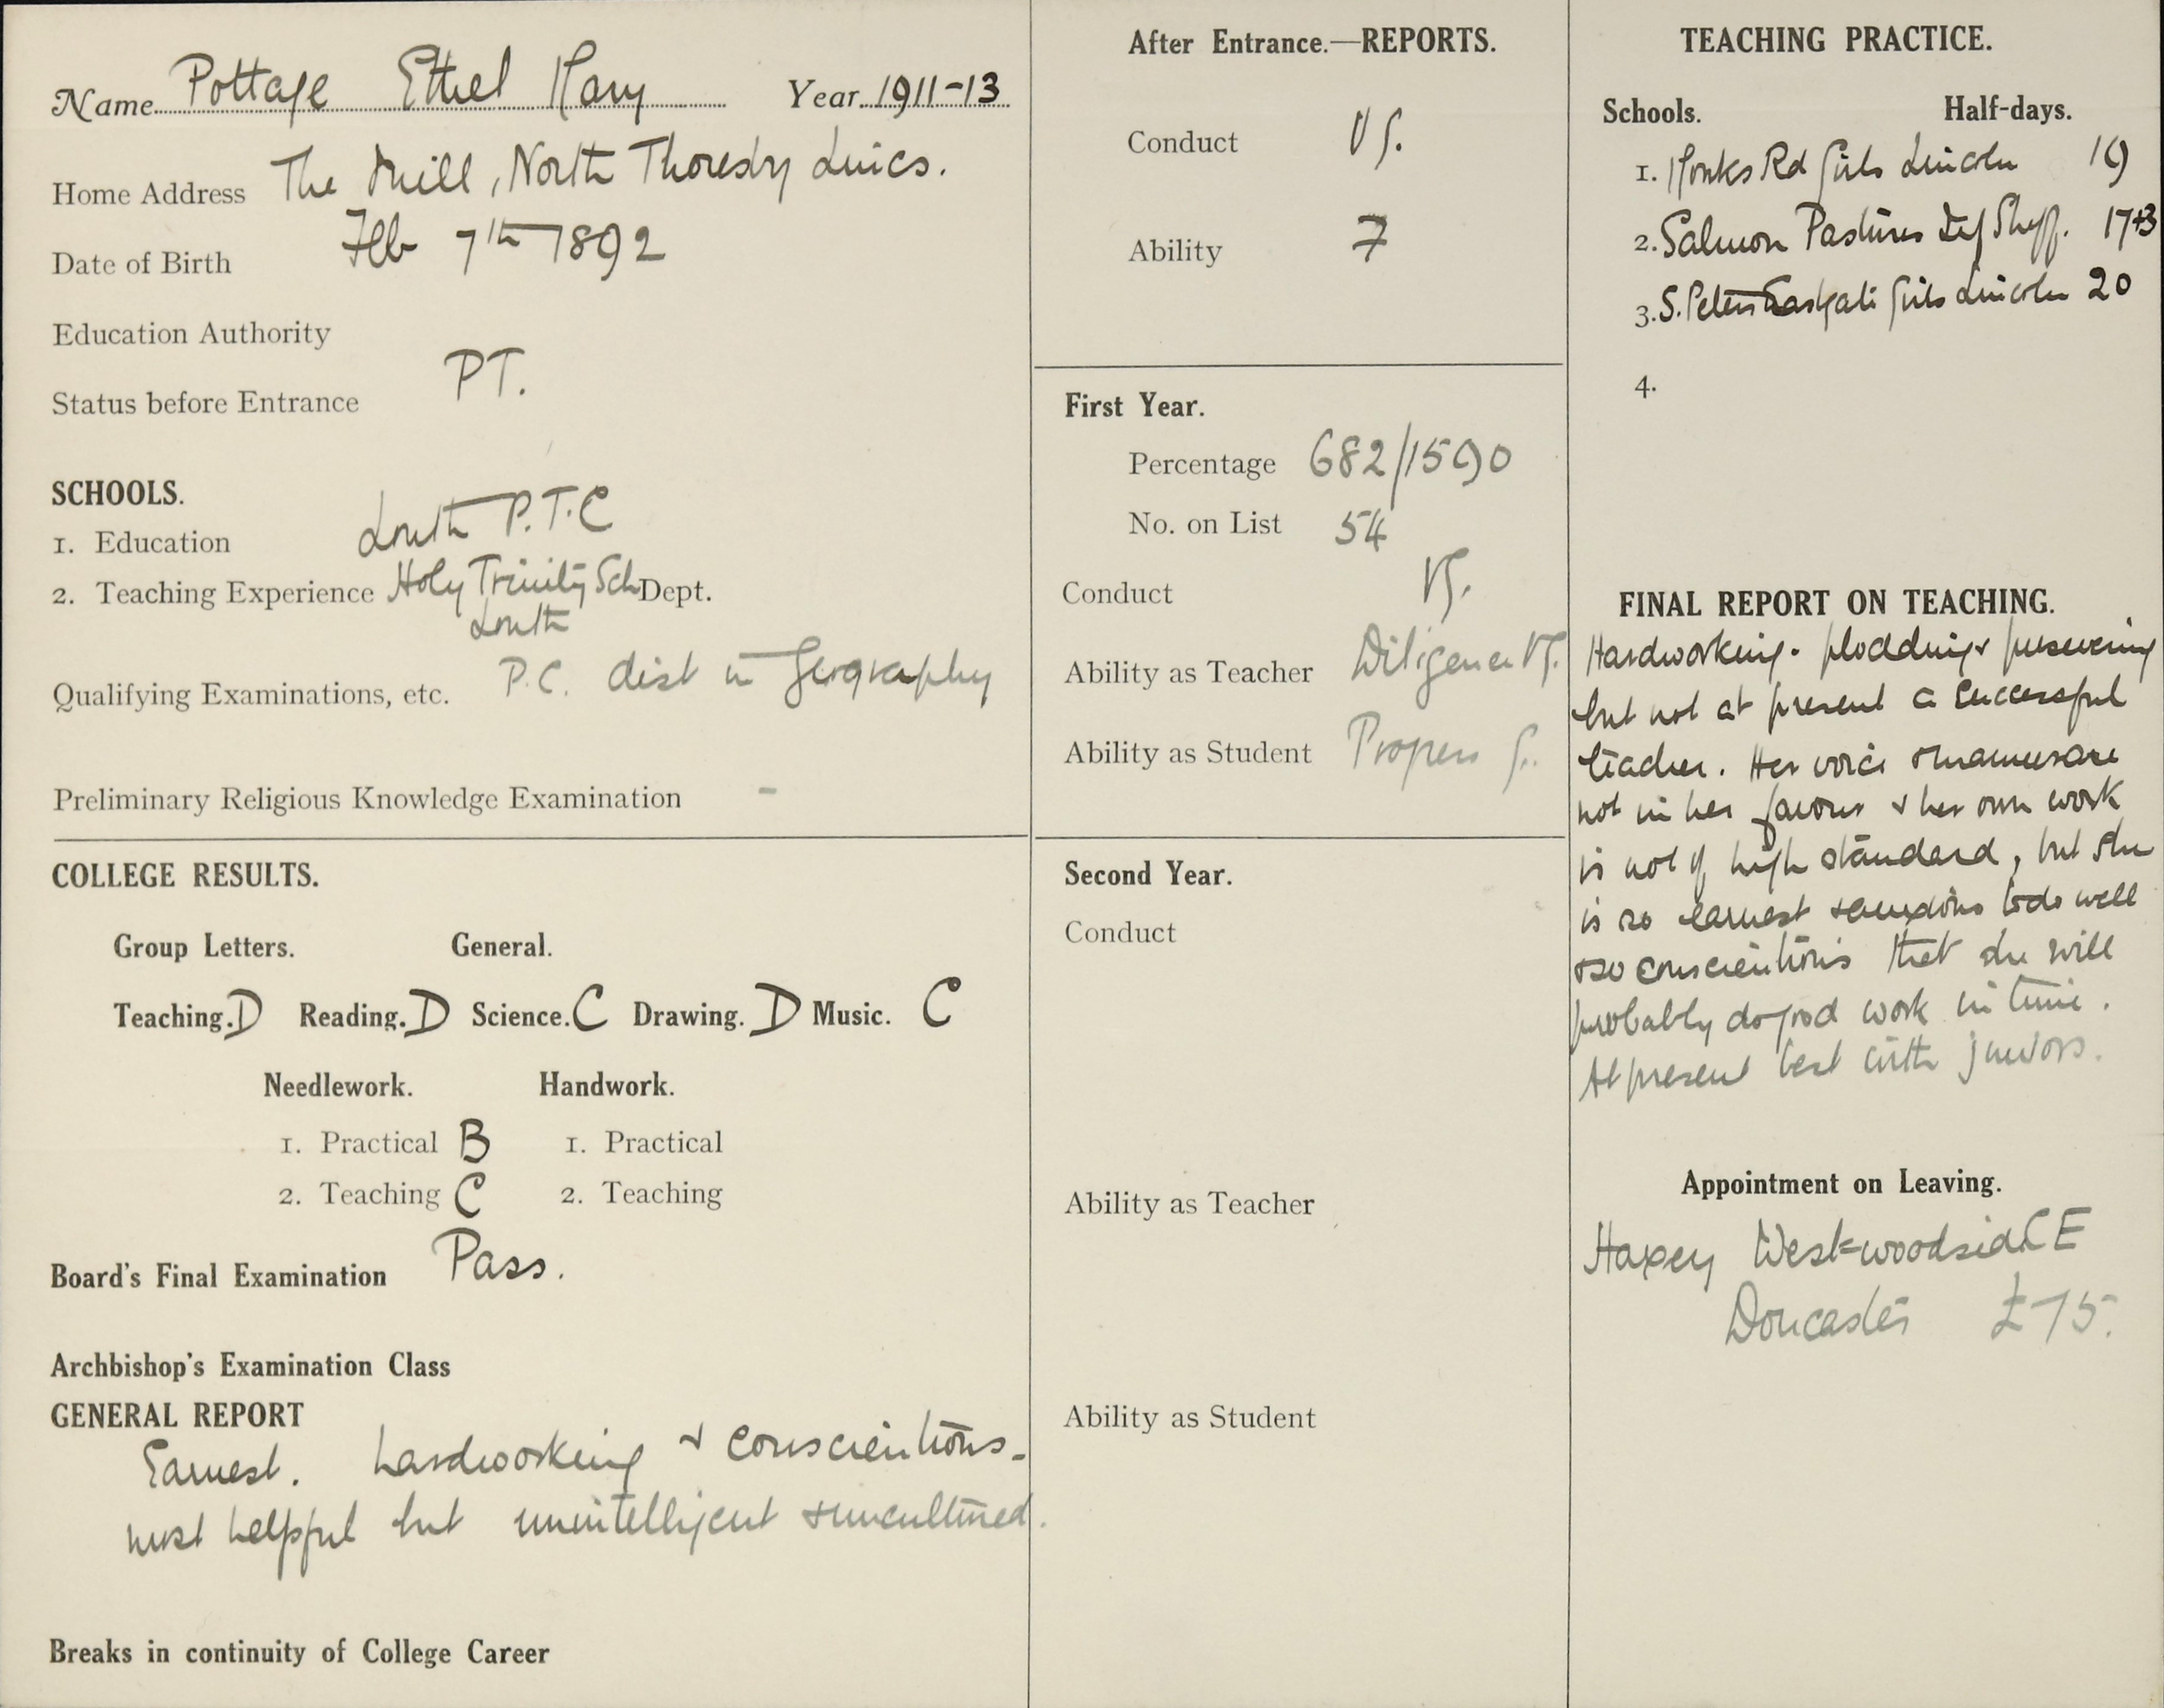 Name Pottage Ethel Mary Year 1911-13
Home Address The Mill, North Thoresby Lincs.
Date of Birth Feb 7th 1892
Education Authority
Status before Entrance PT.
SCHOOLS.
1. Education Louth P.T.C
2. Teaching Experience Holy Trinity Sch Dept.
Louth
Qualifying Examinations, etc. P.C. dist in Geography
Preliminary Religious Knowledge Examination -
COLLEGE RESULTS.
Group Letters. General.
Teaching. D Reading. D Science. C Drawing. D Music. C
Needlework. Handwork.
1. Practical B 1. Practical
2. Teaching C 2. Teaching
Board's Final Examination Pass.
Archbishop's Examination Class
GENERAL REPORT
Earnest. hardworking & conscientious -
most helpful but unintelligent & uncultured.
Breaks in continuity of College Career
After Entrance.—REPORTS.
Conduct VG.
Ability 7
First Year.
Percentage 682/1590
No. on List 54
Conduct VG.
Ability as Teacher Diligence VG.
Ability as Student Progress G.
Second Year.
Conduct
Ability as Teacher
Ability as Student
TEACHING PRACTICE.
Schools. Half-days.
1. Monks Rd Girls Lincoln 19
2. Salmon Pastures Sheff. 17+3
3. S. Peters Eastgate Girls Lincoln 20
4.
FINAL REPORT ON TEACHING.
Hardworking. plodding & persevering
but not at present a successful
teacher. Her voice & manner are
not in her favour & her own work
is not of high standard, but she
is so earnest & anxious to do well
& so conscientious that she will
probably do good work in time.
At present best with juniors.
Appointment on Leaving.
Haxey West-woodside CE
Doncaster £75.